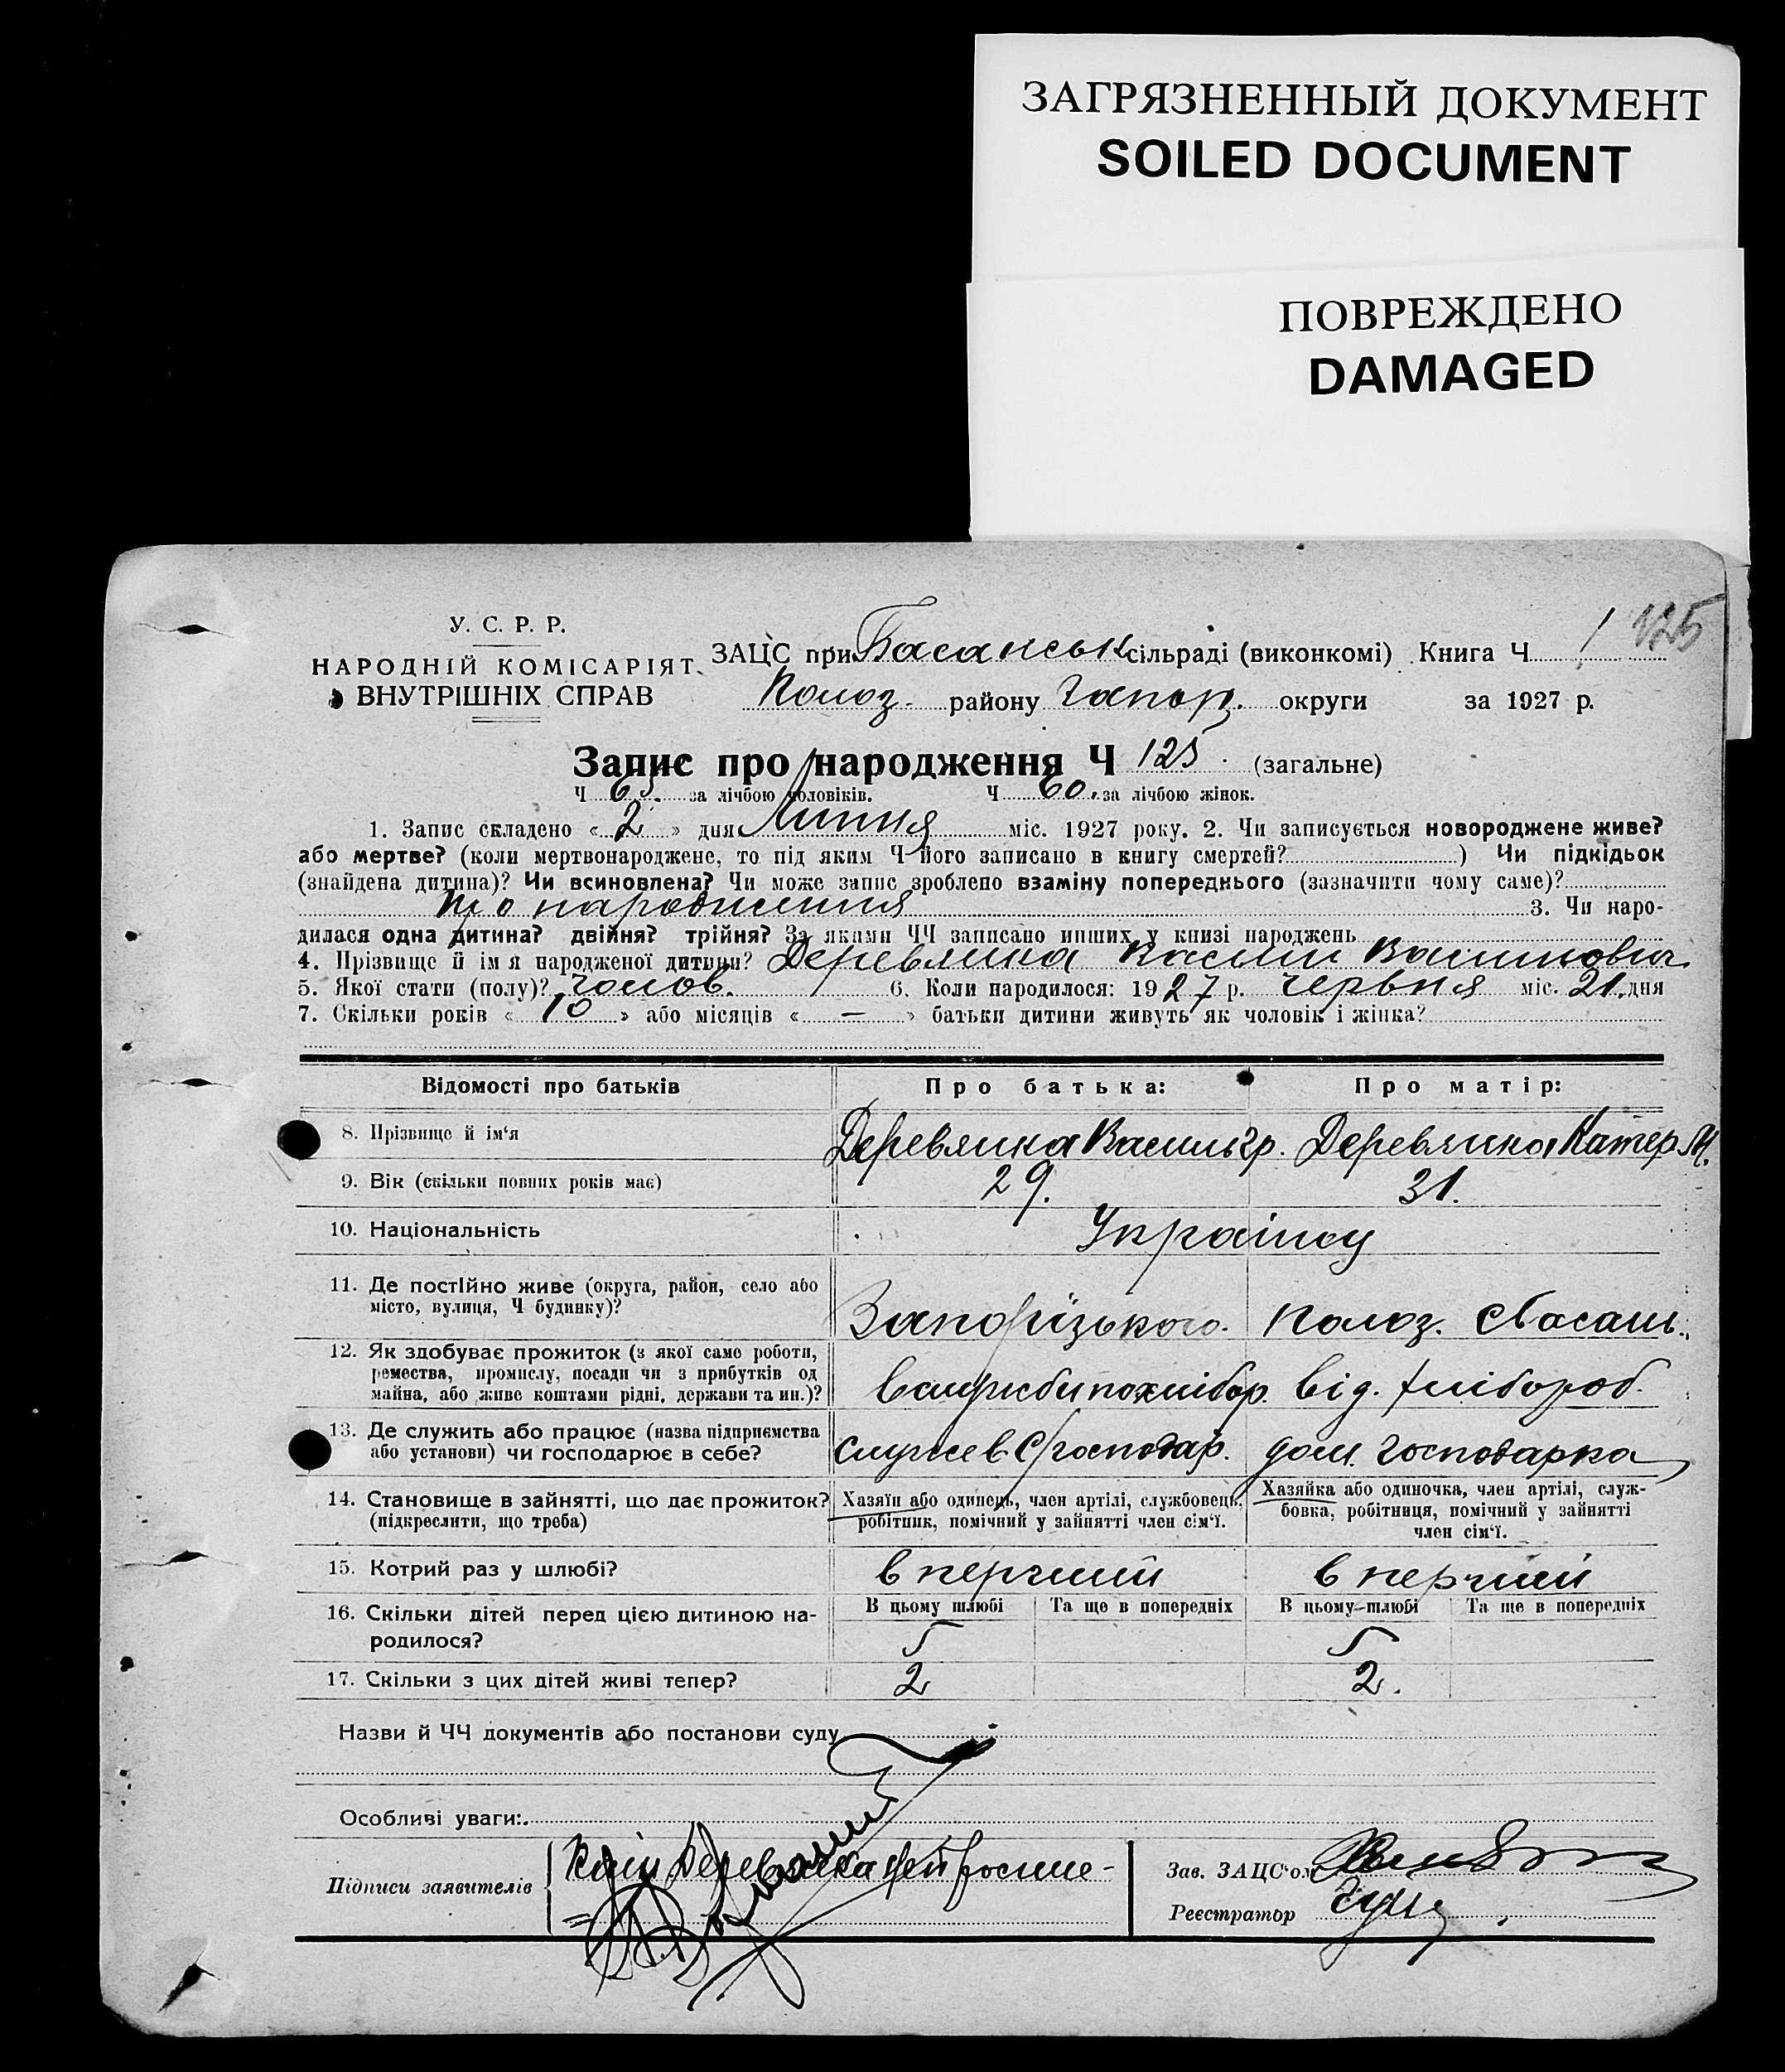 ЗАГРЯЗНЕННЫЙ ДОКУМЕНТ
SOILED DOCUMENT
ПОВРЕЖДЕНО
DAMAGED
У. С. Р. Р.
НАРОДНІЙ КОМІСАРІЯТ
ВНУТРІШНІХ СПРАВ
125
ЗАЦС при Басанськ сільраді (виконкомі) Книга Ч 1
Полог. району Запор. округи за 1927 р.
Запис про народження Ч 125. (загальне)
Ч 65. за лічбою чоловіків. Ч 60. за лічбою жінок.
1. Запис складено « 2 » дня Липня міс. 1927 року. 2. Чи записується новороджене живе?
або мертве? (коли мертвонароджене, то під яким Ч його записано в книгу смертей? ) Чи підкідьок
(знайдена дитина)? Чи всиновлена? Чи може запис зроблено взаміну попереднього (зазначити чому саме)?
про народження 3. Чи наро-
дилася одна дитина? двійня? трійня? За якими ЧЧ записано инших у книзі народжень
4. Прізвище й ім я народженої дитини? Деревянка
5. Якої стати (полу)? чолов. 6. Коли народилося: 1927 р. червня міс. 21. дня
7. Скільки років « 10 » або місяців « — » батьки дитини живуть як чоловік і жінка?
Відомості про батьків Про батька: Про матір:
8. Прізвище й ім‘я Деревянка Василь Гр. Деревянка Катер. М.
9. Вік (скільки повних років має) 29. 31.
10. Національність Українцу
11. Де постійно живе (округа, район, село або
місто, вулиця, Ч будинку)? Запорізького. Полог. с Басань.
12. Як здобуває прожиток (з якої само роботи,
ремества, промислу, посади чи з прибутків од
майна, або живе коштами рідні, держави та ин.)? від. хлібороб.
13. Де служить або працює (назва підприємства
або установи) чи господарює в себе? господар. дом. господарка
14. Становище в зайнятті, що дає прожиток?
(підкреслити, що треба)
Хазяїн або одинець, член артілі, службовець,
робітник, помічний у зайнятті член сім‘ї.
Хазяйка або одиночка, член артілі, служ-
бовка, робітниця, помічний у зайнятті
член сім‘ї.
15. Котрий раз у шлюбі? в перший в перший
16. Скільки дітей перед цією дитиною на-
родилося?
В цьому шлюбі Та ще в попередніх В цьому шлюбі Та ще в попередніх
5 5
17. Скільки з цих дітей живі тепер? 2 2.
Назви й ЧЧ документів або постанови суду
Особливі уваги:
Підписи заявителів Деревянка
Зав. ЗАЦС‘ом
Реєстратор